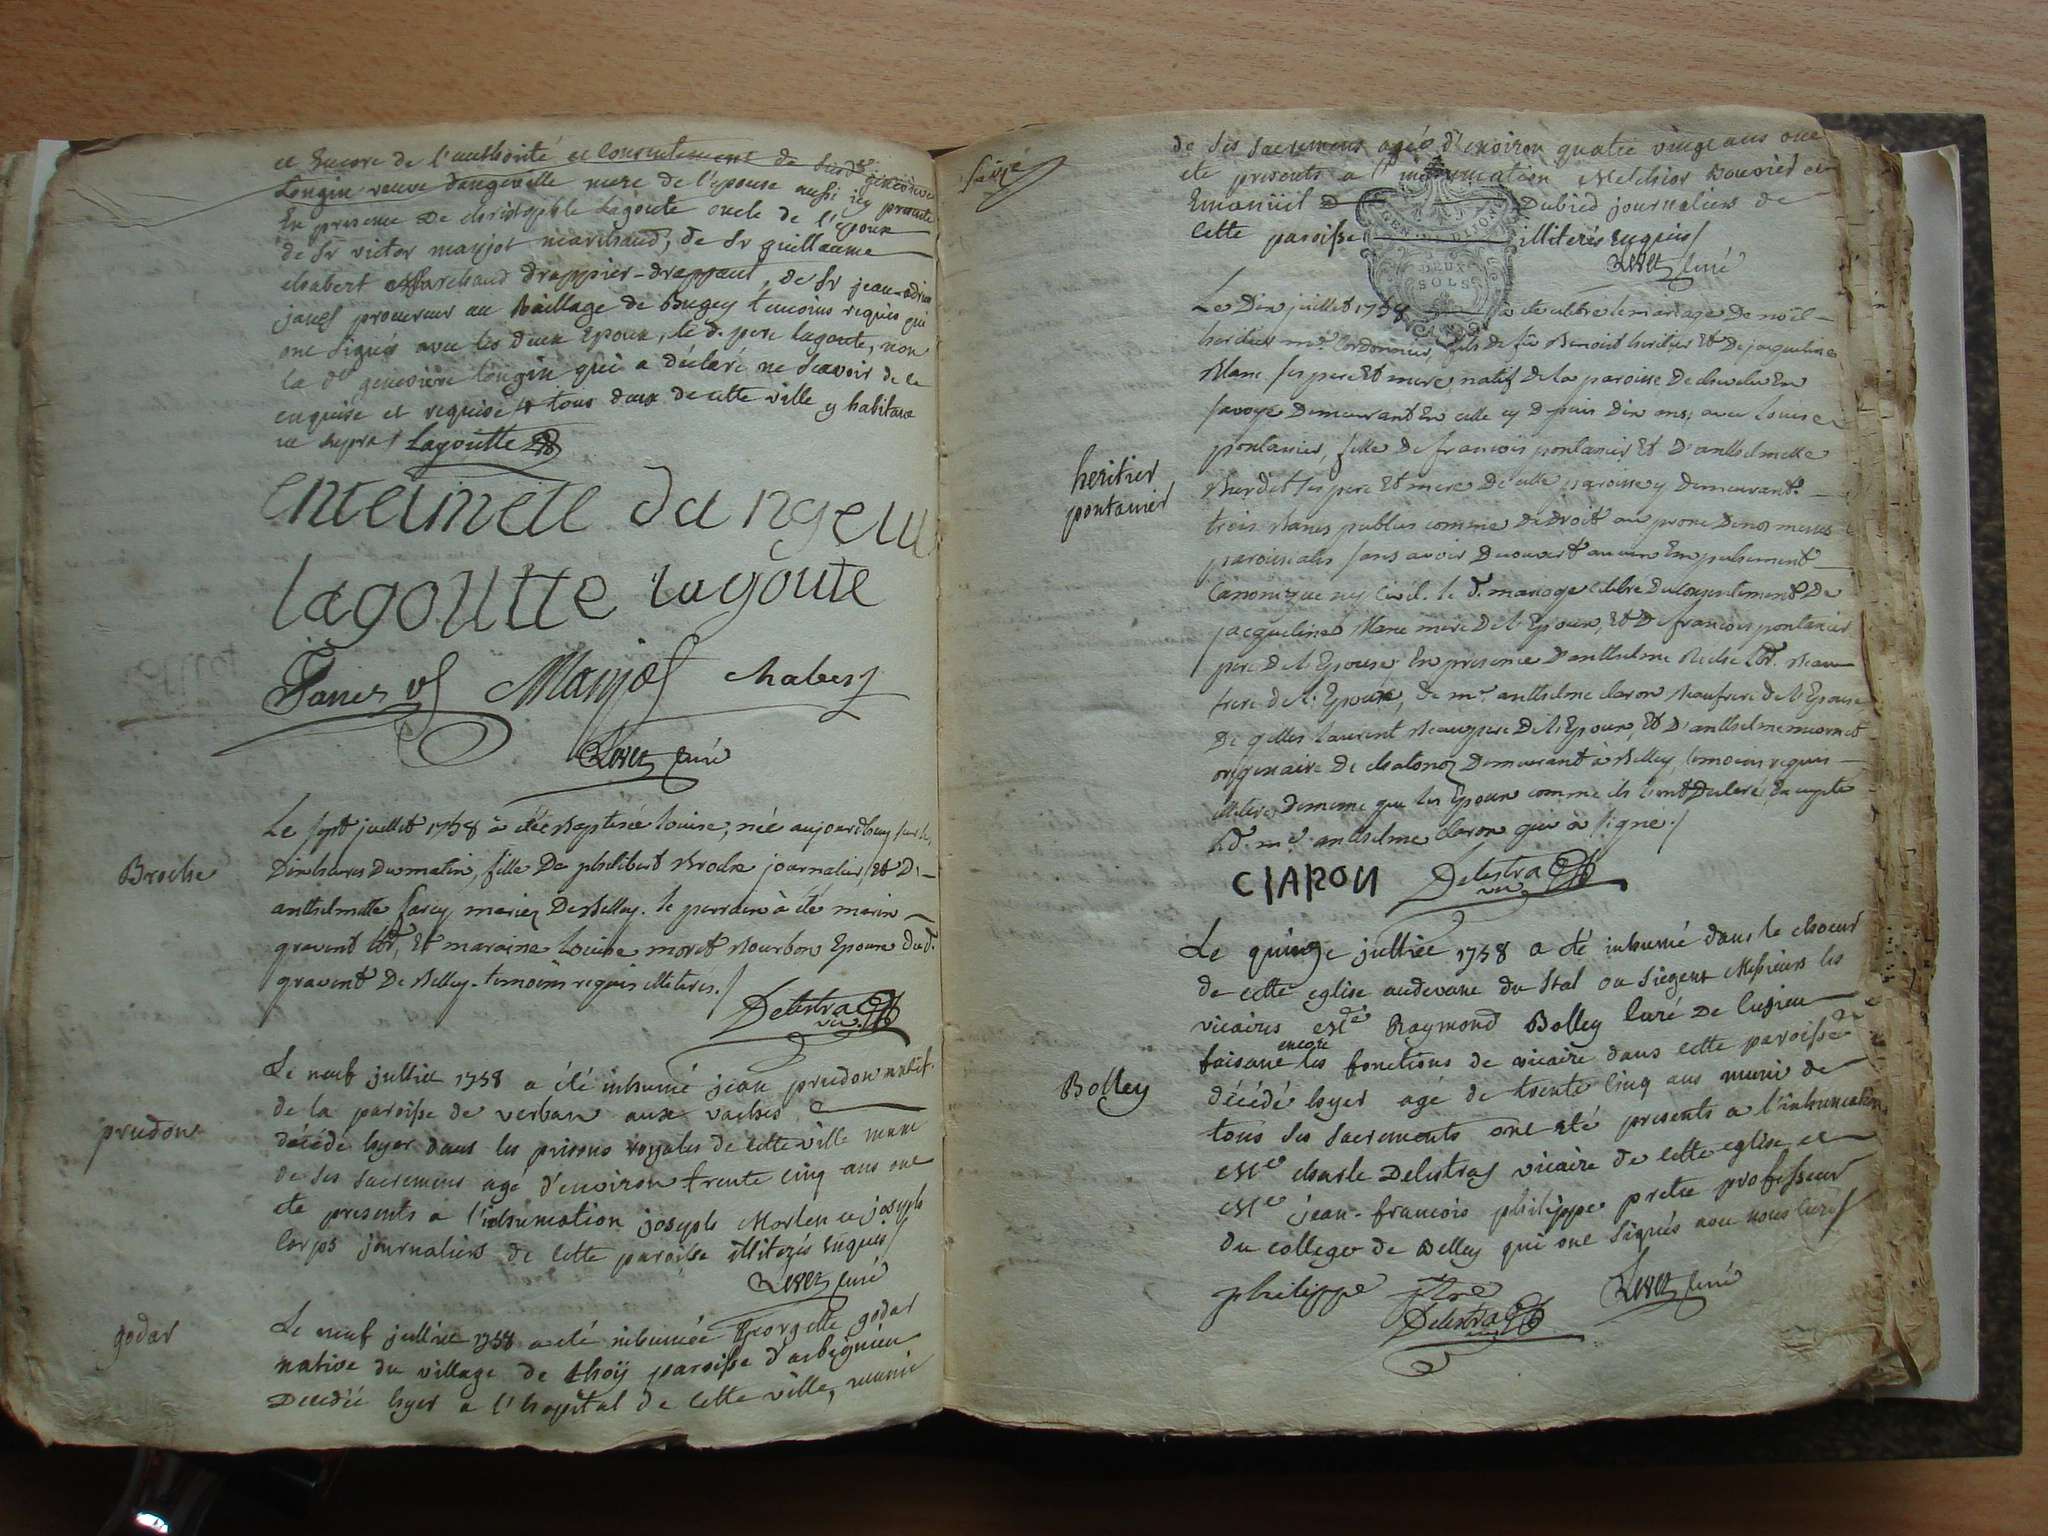 et encore de l'authorité et consentement de
Longin veuve dangeville mere de l'epouse aussi icy presente
En presence de christophle Lagoute oncle de l'epoux
de Sr victor manjot marchand, de Sr guillaume
chabert Marchand drappier-drappant, de Sr jean-
janes procureur au Bailliage de Bugey temoins requis qui
ont signés avec les deux Epoux, le d. pere lagoute, non
la de genevieve longin qui a déclaré ne scavoir de ce
enquise et requise tous deux de cette ville y habitant
ut supra / Lagoutte
entelmete dangevil
lagoutte lagoute
Janes Manjot Chabert
Revet curé
Broche
Le sept juillet 1758 à été Baptisée louise, née aujourdhuy sur les
Dix heures du matin, fille De philibert Broche journalier, Et D'
anthelmette farcy mariez De Belley. le parrain à été marin
gravent et maraine louise moret Bourbon Epouse du d.
gravent De Belley. temoins requis illeteres. /
Delestra
vic.
prudon
Le neuf julliet 1758 a été inhumé jean prudon natif
de la paroisse de verban aux vaches
décédé hyer dans les prisons royales de cette ville muni
de ses sacremens agé d'environ trente cinq ans ont
été presents a l'inhumation joseph Marlen et joseph
Corps journaliers de cette paroisse illiterés enquis /
Revet curé
godar
Le neuf julliet 1758 a été inhumée georgette godar
native du village de thoÿ paroisse d'arbignieu
Decedée hyer a l'hopital de cette ville, munie
de ses sacremens agée d'environ quatre vingt ans ont
été presents a l'inhumation Melchior Bouvier et
Emanuel D Dubied journaliers de
cette paroisse illiterés enquis /
Revet curé
GEN. DE DIJON
DEUX
SOLS
heritier
pontanier
Le Dix juillet 1758 à été celebré le mariage De noël
heritier me Cordonnier, fils De fû Benoist heritier Et De jacqueline
Mane ses pere Et mere, natif de la paroisse De En
savoye Demeurant En cette cy depuis Dix ans; avec louise
pontanier, fille De francois pontanier Et D'anthelmette
Burdet ses pere Et mere De cette paroisse y Demeurant.
trois Banes publies comme De Droit au prone De nos messes
paroissiales sans avoir Decouvert aucun Empechement
Canonique ny Civil. le d. mariage celebré Du consentement De
jacqueline Mane mere De l'Epoux, Et De francois pontanier
pere De l'Epouse En presence D'anthelme Beau
frere de l'Epoux, De me anthelme claron Beaufrere de l'Epouse
De gilles laurent Beaupere De l'Epoux, Et D'anthelme mornet
originaire De chatonoz Demeurant à Belley, temoins requis
illiteres De meme que les Epoux comme ils l'ont Declaré Excepté
led. me anthelme claron qui à signé. /
ClARON Delestra
vic
Bolley
Le quinze julliet 1758 a été inhumé dans le choeur
de cette eglise audevant du Stal ou siegent Messieurs les
vicaires Mre Raymond Bolley Curé De Cusieu
faisant encore les fonctions de vicaire dans cette paroisse
décédé hyer agé de trente cinq ans muni de
tous ses sacrements ont été presents a l'inhumation
Mre charle Delestraz vicaire de cette eglise et
Mre jean-francois philippe pretre professeur
du college de Belley qui ont signés avec nous curé /
philippe ptre Revet curé
Delestra